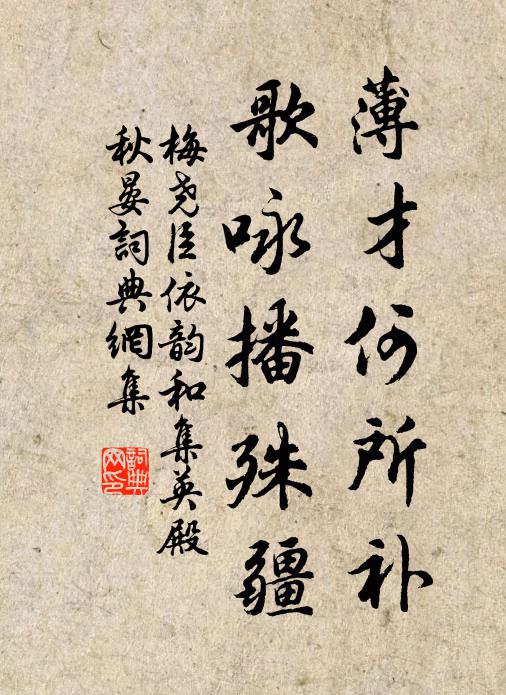 薄才何所补
歌咏播殊疆
梅尧臣依韵和集英殿
秋宴詞典網集
詞典
网印